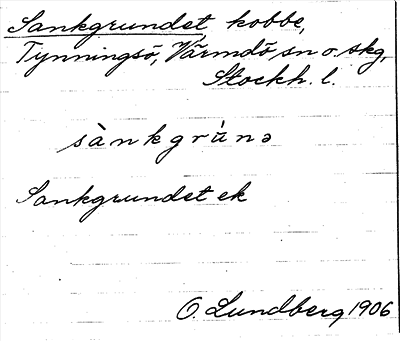 Sankgrundet kobbe,
Tynningsö, Värmdö sn o. skg,
Stockh. l.
sànkgrùnə
Sankgrundet ek
O. Lundberg 1906